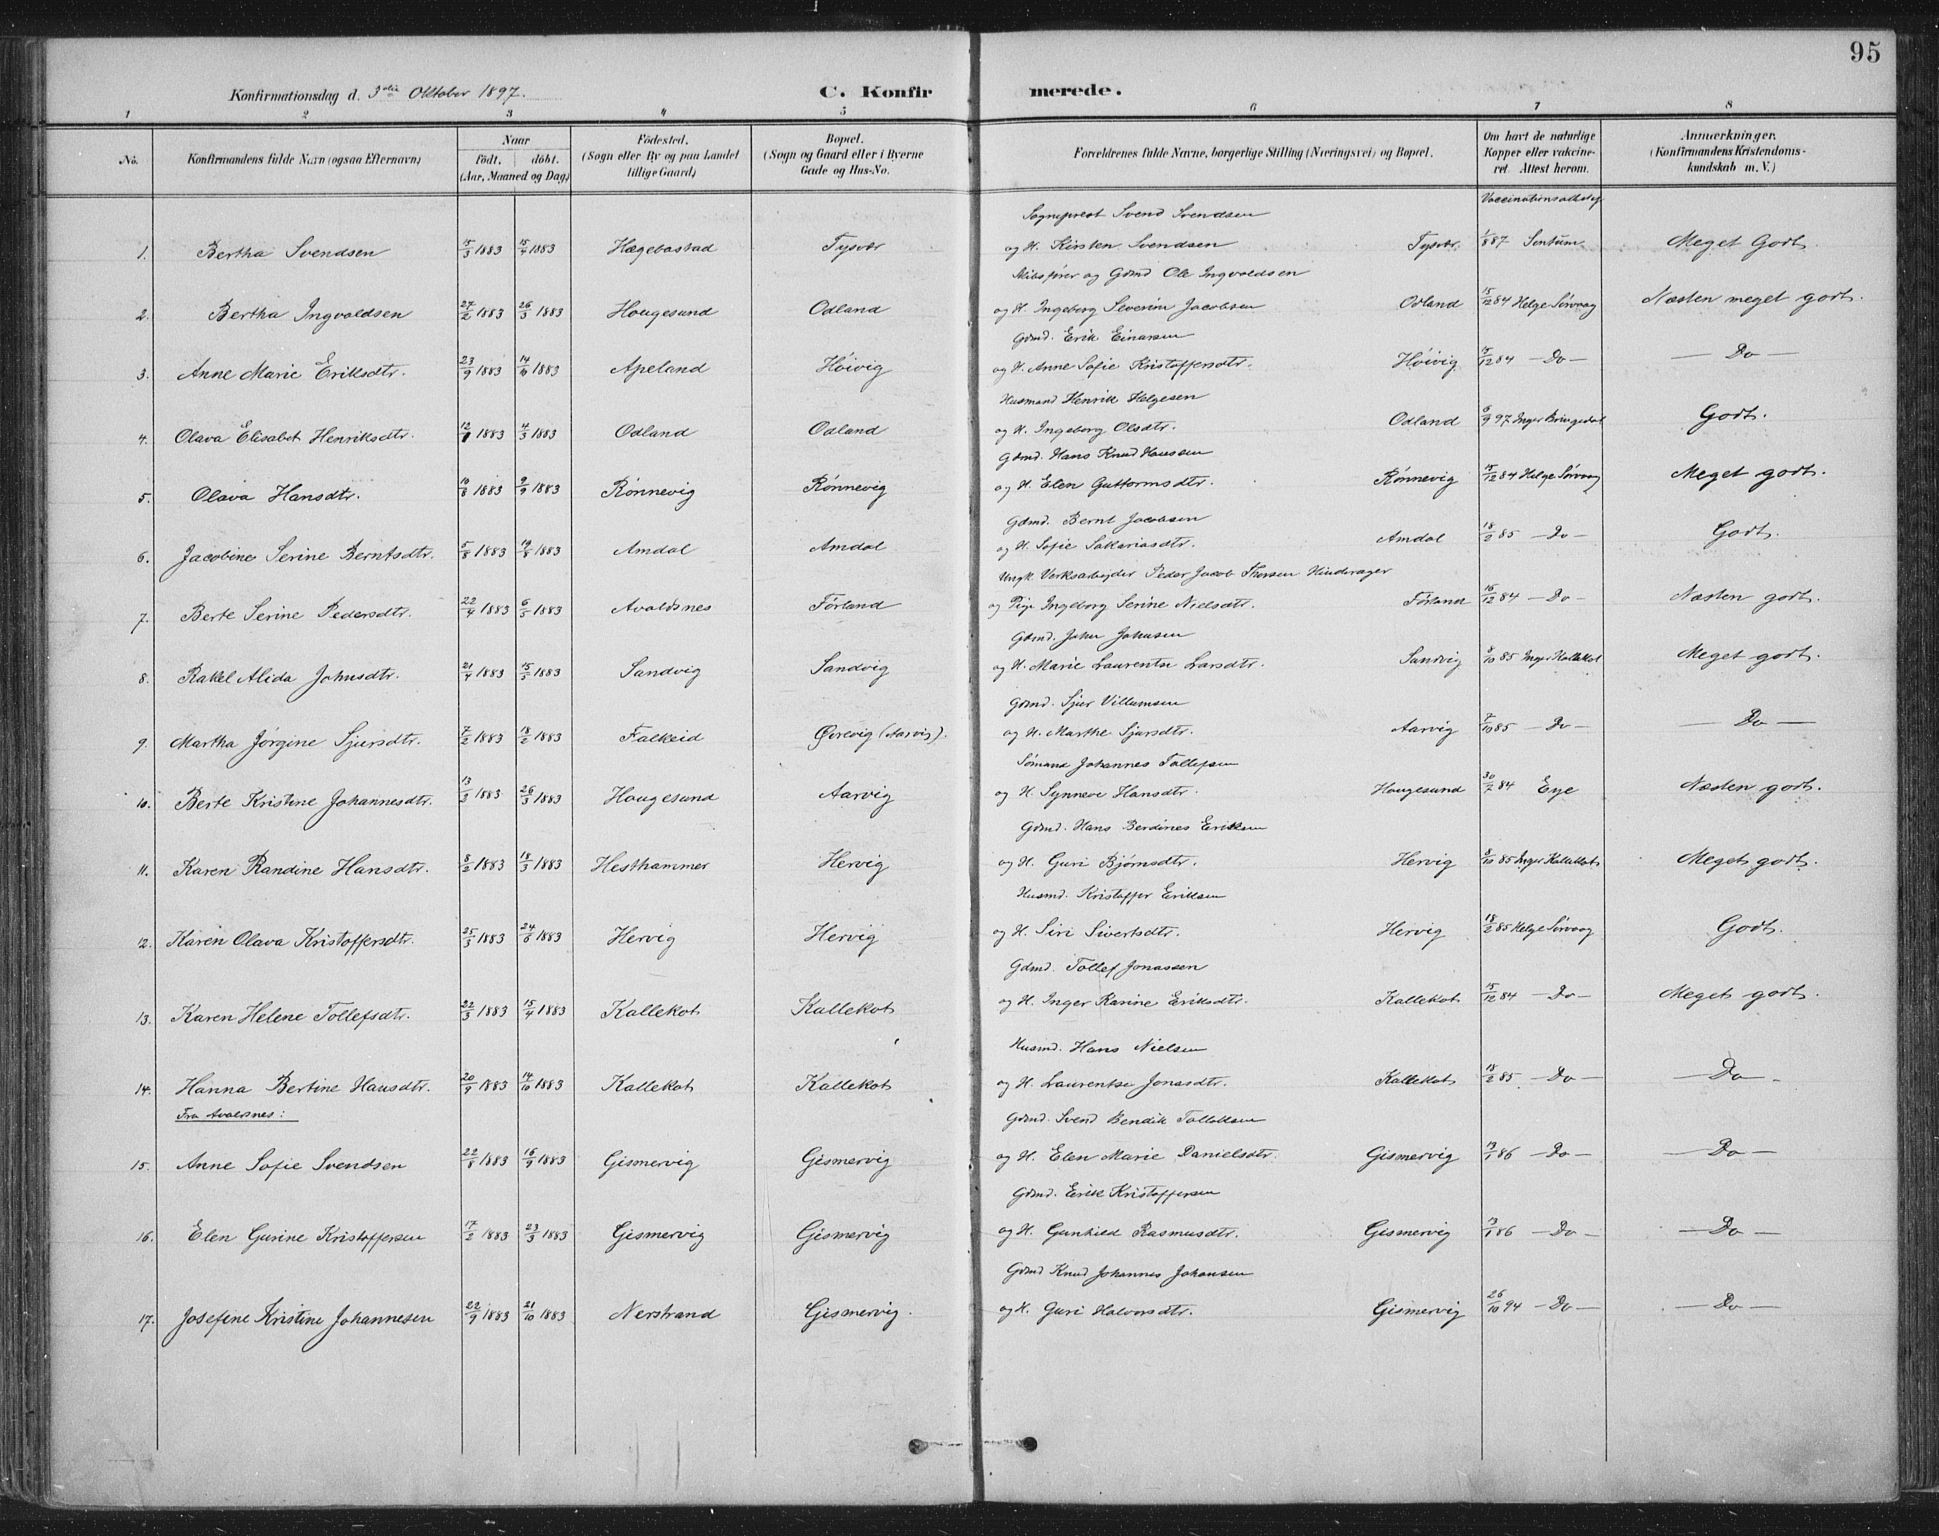 95
Konfirmationsdag d. 3die Oktober 1897. C. Konfirmerede.
1 2 3 4 5 6 7 8
No. Konfirmandens fulde Navn (ogsaa Efternavn) Naar födt. döbt. (Aar, Maaned og Dag) Födested. (Sogn eller By og paa Landet tillige Gaard) Bopæl. (Sogn og Gaard eller i Byerne Gade og Hus-No. Forældrenes fulde Navne, borgerlige Stilling (Næringsvei) og Bopæl. Om havt de naturlige Kopper eller vakcineret. Attest herom. Anmærkninger. (Konfirmandens Kristendomskundskab m. V.)
Sognepræst Svend Svendsen Vaccinationsattest af
1. Bertha Svendsen 15/3 1883 15/4 1883 Hægebostad Tysvær og H. Kirsten Svendsen Tysvær 1/8 87 Sentum Meget Godt
Ole Ingvaldsen
2. Bertha Ingvaldsen 27/2 1883 26/3 1883 Hougesund Odland og H. Ingeborg Severin Jacobsen Odland 15/12 84 Helge Sørvaag Næsten meget godt.
Gdmd. Erik Einarsen
3. Anne Marie Eriksdtr. 23/9 1883 14/10 1883 Apeland Höivig og H. Anne Sofie Kristoffersdtr. Höivig 15/12 84 — Do — — Do —
Husmand Henrik Helgesen
4. Olava Elisabet Henriksdtr. 1883 4/3 1883 Odland Odland og H. Ingeborg Olsdtr. Odland 6/9 97 Inger Bringedal Godt.
Gdmd. Hans Knud Hanssen
5. Olava Hansdtr. 10/8 1883 9/9 1883 Rønnevig Rønnevig og H. Elen Guttormsdtr. Rønnevig 15/12 84 Helge Sørvaag Meget godt.
Gdmd. Bernt Jacobsen
6. Jacobine Serine Berntsdtr. 5/8 1883 19/8 1883 Amdal Amdal og H. Sofie Sakariasdtr. Amdal 18/2 85 — Do — Godt.
Ungk. Verksarbejder Peder Jacob Thorsen Hinderager
7. Berte Serine Pedersdtr. 22/4 1883 6/5 1883 Avaldsnes Førland og Pige Ingeborg Serine Nielsdtr. Førland 15/12 84 — Do — Næsten godt.
Gdmd. John Johnsen
8. Rakel Alida Johnsdtr. 21/4 1883 15/5 1883 Sandvig Sandvig og H. Marie Laurentse Larsdtr. Sandvig 8/10 85 Inger Kallekot Meget godt.
Gdmd. Sjur Villumsen
9. Martha Jørgine Sjursdtr. 7/2 1883 18/2 1883 Falkeid Øvrevig (Aarvig). og H. Marthe Sjursdtr. Aarvig 7/10 85 — Do — — Do —
Sømand Johannes Tollefsen
10. Berte Kristine Johannesdtr. 1883 26/3 1883 Hougesund Aarvig og H. Synneve Hansdtr. Hougesund 30/7 84 Eye Næsten godt.
Gdmd. Hans Berdines Eriksen
11. Karen Randine Hansdtr. 8/2 1883 18/3 1883 Hesthammer Hervig og H. Guri Bjørnsdtr. Hervig 8/10 85 Inger Kallekot Meget godt.
Husmd. Kristoffer Eriksen
12. Karen Olava Kristoffersdtr. 25/5 1883 24/6 1883 Hervig Hervig og H. Siri Sivertsdtr. Hervig 18/2 85 Helge Sørvaag Godt.
Gdmd. Tollef Jonassen
13. Karen Helene Tollefsdtr. 22/3 1883 15/4 1883 Kallekot Kallekot og H. Inger Karine Eriksdtr. Kallekot 15/12 84 — Do — Meget godt.
Husmd. Hans Nielsen
14. Hanna Bertine Hansdtr. 20/9 1883 14/10 1883 Kallekot Kallekot og H. Laurentse Jonasdtr. Kallekot 18/2 85. — Do — — Do —
Fra Avalsnes:
Gdmd. Svend Bendik Tolleksen
15. Anne Sofie Svendsen 22/8 1883 16/9 1883 Gismervig Gismervig og H. Elen Marie Danielsdtr. Gismervig 13/1 86 — Do — — Do —
Gdmd. Erik Kristoffersen
16. Elen Gurine Kristoffersen 17/2 1883 23/3 1883 Gismervig Gismervig og H. Gunhild Rasmusdtr. Gismervig 13/1 86 — Do — — Do —
Gdmd Knud Johannes Johansen
17. Josefine Kristine Johannesen 22/9 1883 21/10 1883 Nerstrand Gismervig. og H. Guri Halvorsdtr. Gismervig 26/10 94 — Do — — Do —